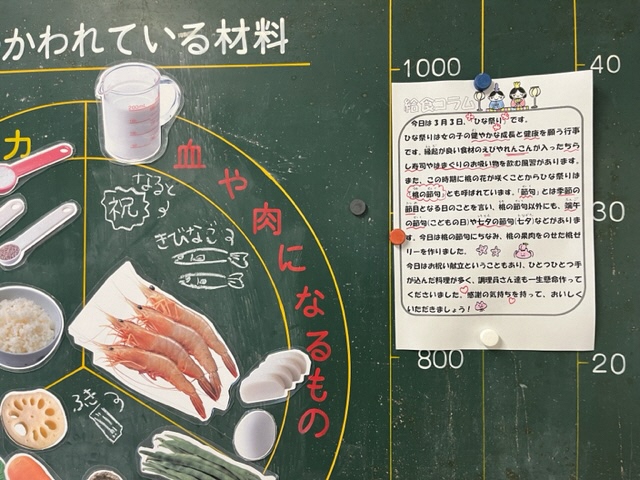 かわれている材料
力
血や肉になるもの
なると
祝
きびなご
ふき
200mL
1000
800
40
30
20
給食コラム
今日は3月3日、ひな祭りです。
ひな祭りは女の子の健やかな成長と健康を願う行事
です。縁起が良い食材のえびやれんこんが入ったちら
し寿司やはまぐりのお吸い物を飲む風習があります。
また、この時期に桃の花が咲くことからひな祭りは
「桃の節句」とも呼ばれています。「節句」とは季節の
節目となる日のことを言い、桃の節句以外にも、端午
の節句(こどもの日)や七夕の節句(七夕)などがありま
す。今日は桃の節句にちなみ、桃の果肉をのせた桃ゼ
リーを作りました。
今日はお祝い献立ということもあり、ひとつひとつ手
が込んだ料理が多く、調理員さん達も一生懸命作って
くださいました。感謝の気持ちを持って、おいしく
いただきましょう!